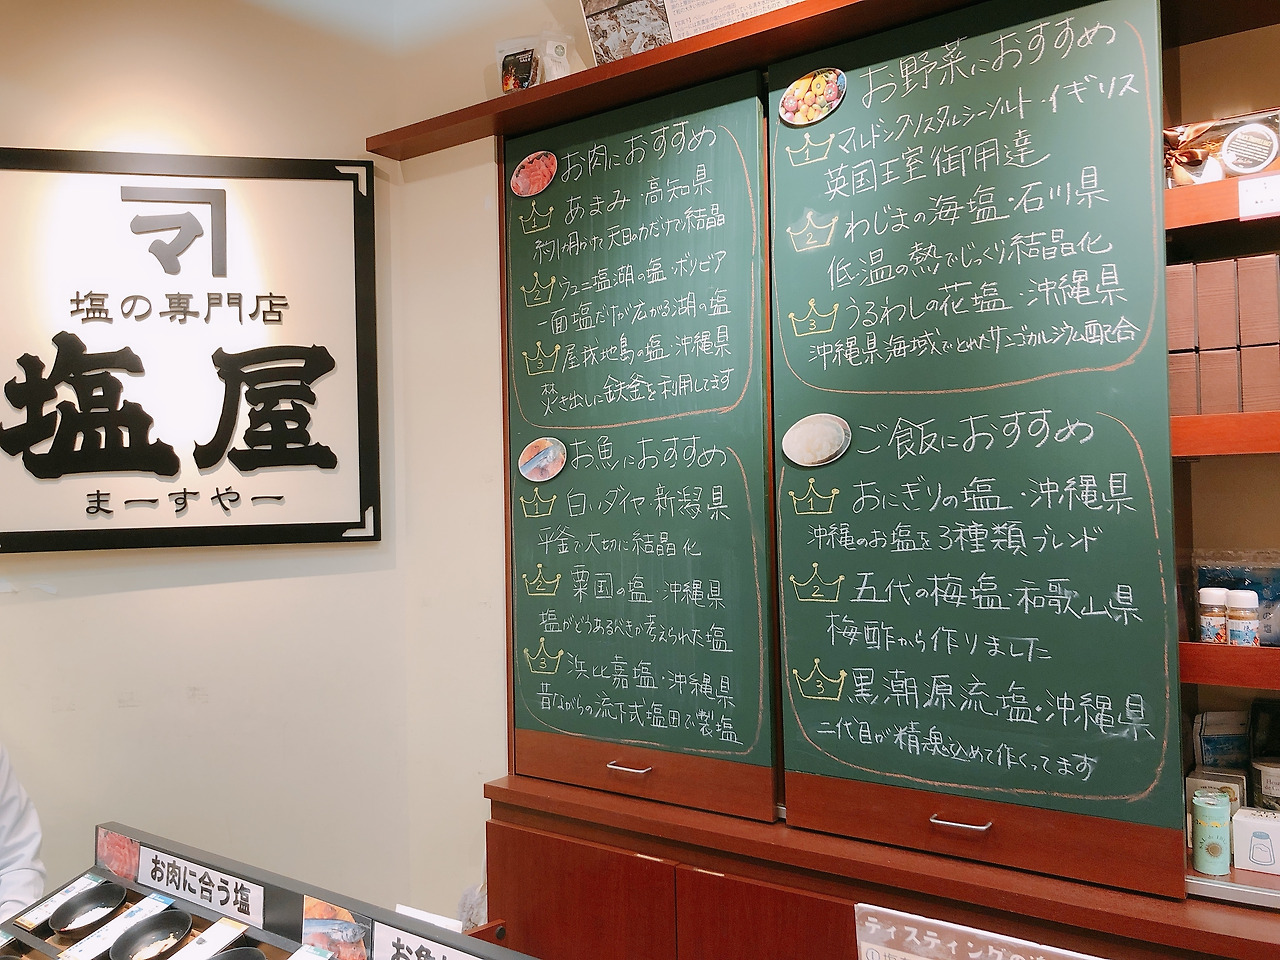 マ
塩の専門店
塩屋
まーすやー
お肉におすすめ
1 あまみ・高知県
約1ヶ月かけて天日の力だけで結晶
2 ウユニ塩湖の塩・ボリビア
一面塩だけが広がる湖の塩
3 屋我地島の塩・沖縄県
焚き出しに鉄釜を利用してます
お魚におすすめ
1 白いダイヤ・新潟県
平釜で大切に結晶化
2 粟国の塩・沖縄県
塩がどうあるべきか考えられた塩
3 浜比嘉塩・沖縄県
昔ながらの流下式塩田で製塩
お野菜におすすめ
1 マルドンクリスタルシーソルト・イギリス
英国王室御用達
2 わじまの海塩・石川県
低温の熱でじっくり結晶化
3 うるわしの花塩・沖縄県
沖縄県海域でとれたサンゴカルシウム配合
ご飯におすすめ
1 おにぎりの塩・沖縄県
沖縄のお塩を3種類ブレンド
2 五代の梅塩・和歌山県
梅酢から作りました
3 黒潮源流塩・沖縄県
二代目が精魂込めて作ってます
お肉に合う塩
お魚
ティスティングの